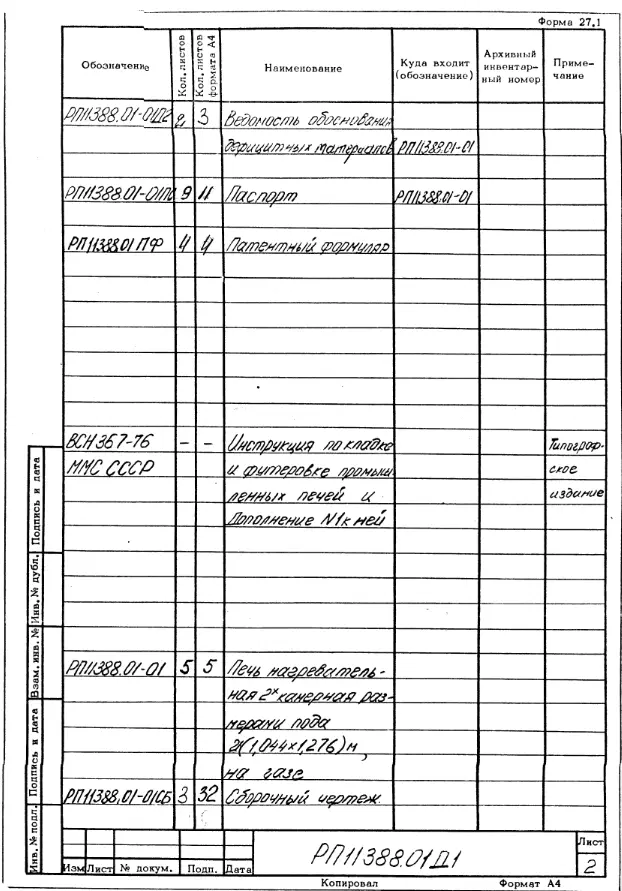 Форма 27.1
Обозначение
Кол. листов
Кол. листов формата А4
Наименование
Куда входит (обозначение)
Архивный инвентарный номер
Примечание
РП11388.01-01Д2 2 3 Ведомость обоснования
дефицитных материалов РП11388.01-01
РП11388.01-01ПС 9 11 Паспорт РП11388.01-01
РП11388.01ПФ 4 4 Патентный формуляр
ВСН 367-76 – – Инструкция по кладке Типограф-
ММС СССР и футеровке промыш- ское
ленных печей и издание
Дополнение №1 к ней
РП11388.01-01 5 5 Печь нагреватель-
ная 2х камерная раз-
мерами пода
2х(1,044х1,276)м,
на газе
РП11388.01-01СБ 3 32 Сборочный чертеж.
Подпись и дата
Инв.№ дубл.
Взам. инв.№
Подпись и дата
Инв.№ подл.
Изм Лист № докум. Подп. Дата
РП11388.01Д1
Лист
2
Копировал Формат А4